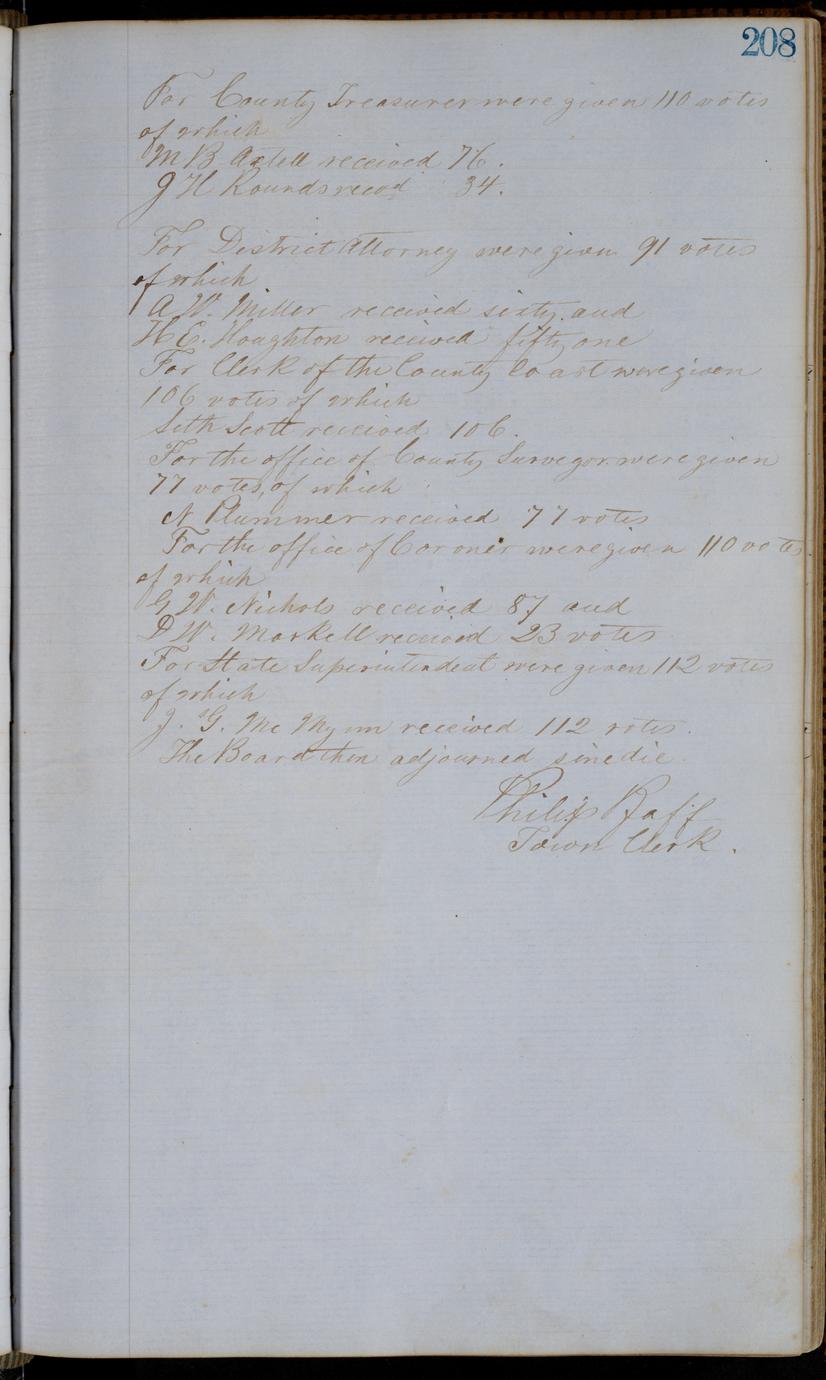 208
For County Treasurer were given 110 votes
of which
M B Axtell received 76.
J H Rounds recvd 34.
For District Attorney were given 91 votes
of which
A W. Miller received sixty and
H E. Houghton received fifty one
For Clerk of the County Coart were given
106 votes of which
Seth Scott received 106.
For the office of County Surveyor were given
77 votes, of which
N Plummer received 77 votes
For the office of Coroner were given 110 votes
of which
G W. Nichols received 87 and
D W. Markell received 23 votes
For State Superintendent were given 112 votes
of which
J. G. Mc Mynn received 112 votes.
The Board then adjourned sine die.
Philip Pfaff
Town Clerk.